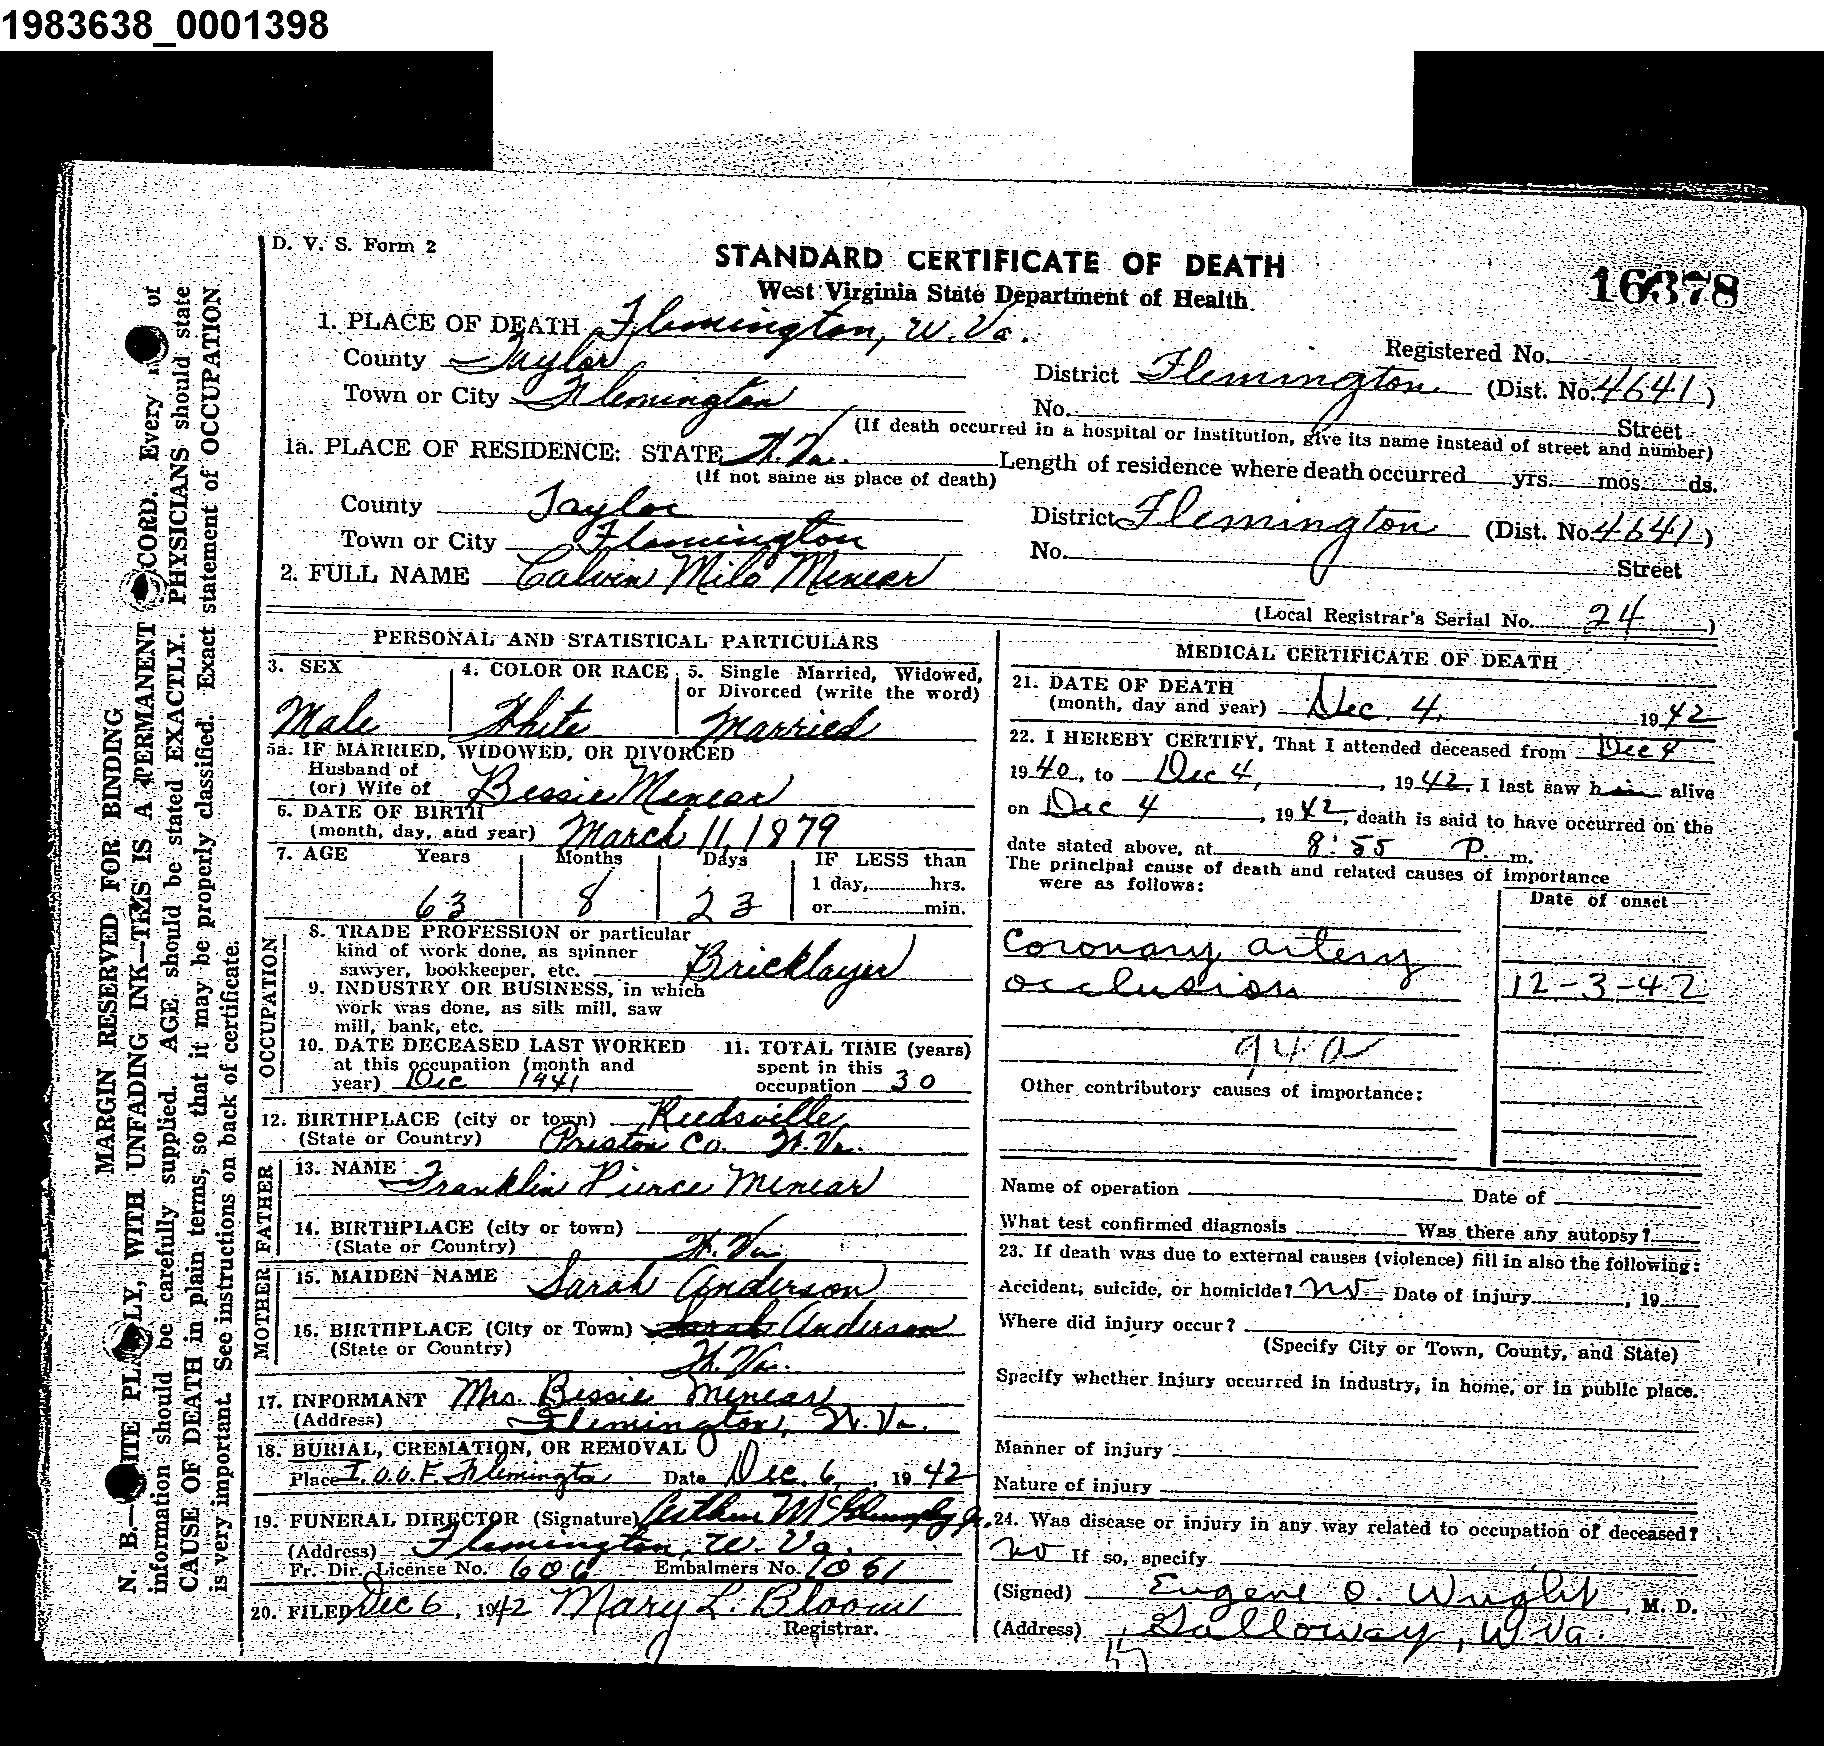 1983638_0001398
D. V. S. Form 2
STANDARD CERTIFICATE OF DEATH
West Virginia State Department of Health
16378
1. PLACE OF DEATH Flemington, W. Va.
Registered No.
County Taylor
District Flemington (Dist. No. 4641)
Town or City Flemington
No. Street
(If death occurred in a hospital or institution, give its name instead of street and number)
1a. PLACE OF RESIDENCE: STATE W. Va.
Length of residence where death occurred yrs. mos. ds.
(If not same as place of death)
County Taylor
District Flemington (Dist. No. 4641)
Town or City Flemington
No. Street
2. FULL NAME Calvin Milo Menear
(Local Registrar's Serial No. 24)
PERSONAL AND STATISTICAL PARTICULARS
3. SEX
Male
4. COLOR OR RACE
White
5. Single Married, Widowed,
or Divorced (write the word)
Married
5a. IF MARRIED, WIDOWED, OR DIVORCED
Husband of
(or) Wife of Bessie Menear
6. DATE OF BIRTH
(month, day, and year) March 11, 1879
7. AGE Years Months Days IF LESS than
1 day, hrs.
63 8 23 or min.
OCCUPATION
8. TRADE PROFESSION or particular
kind of work done, as spinner
sawyer, bookkeeper, etc. Bricklayer
9. INDUSTRY OR BUSINESS, in which
work was done, as silk mill, saw
mill, bank, etc.
10. DATE DECEASED LAST WORKED
at this occupation (month and
year) Dec 1941
11. TOTAL TIME (years)
spent in this
occupation 30
12. BIRTHPLACE (city or town) Reedsville
(State or Country) Preston Co. W. Va.
FATHER
13. NAME Franklin Pierce Menear
14. BIRTHPLACE (city or town)
(State or Country) W. Va.
MOTHER
15. MAIDEN NAME Sarah Anderson
16. BIRTHPLACE (City or Town) Sarah Anderson
(State or Country) W. Va.
17. INFORMANT Mrs. Bessie Menear
(Address) Flemington, W. Va.
18. BURIAL, CREMATION, OR REMOVAL
Place I.O.O.F. Flemington Date Dec. 6, 1942
19. FUNERAL DIRECTOR (Signature) Arthur Jr.
(Address) Flemington, W. Va.
Fr. Dir. License No. 606 Embalmers No. 1051
20. FILED Dec 6, 1942 Mary L. Bloom
Registrar.
MEDICAL CERTIFICATE OF DEATH
21. DATE OF DEATH
(month, day and year) Dec. 4, 1942
22. I HEREBY CERTIFY, That I attended deceased from Dec 4
1940, to Dec 4, 1942, I last saw him alive
on Dec 4, 1942, death is said to have occurred on the
date stated above, at 8:55 P. m.
The principal cause of death and related causes of importance
were as follows:
Date of onset
Coronary artery
occlusion 12-3-42
94a
Other contributory causes of importance:
Name of operation Date of
What test confirmed diagnosis Was there any autopsy?
23. If death was due to external causes (violence) fill in also the following:
Accident, suicide, or homicide? no Date of injury , 19
Where did injury occur?
(Specify City or Town, County, and State)
Specify whether injury occurred in industry, in home, or in public place.
Manner of injury
Nature of injury
24. Was disease or injury in any way related to occupation of deceased?
no If so, specify
(Signed) Eugene O. Wright, M. D.
(Address) Galloway, W Va.
MARGIN RESERVED FOR BINDING
N. B.—WRITE PLAINLY, WITH UNFADING INK—THIS IS A PERMANENT RECORD. Every of
information should be carefully supplied. AGE should be stated EXACTLY. PHYSICIANS should state
CAUSE OF DEATH in plain terms, so that it may be properly classified. Exact statement of OCCUPATION
is very important. See instructions on back of certificate.